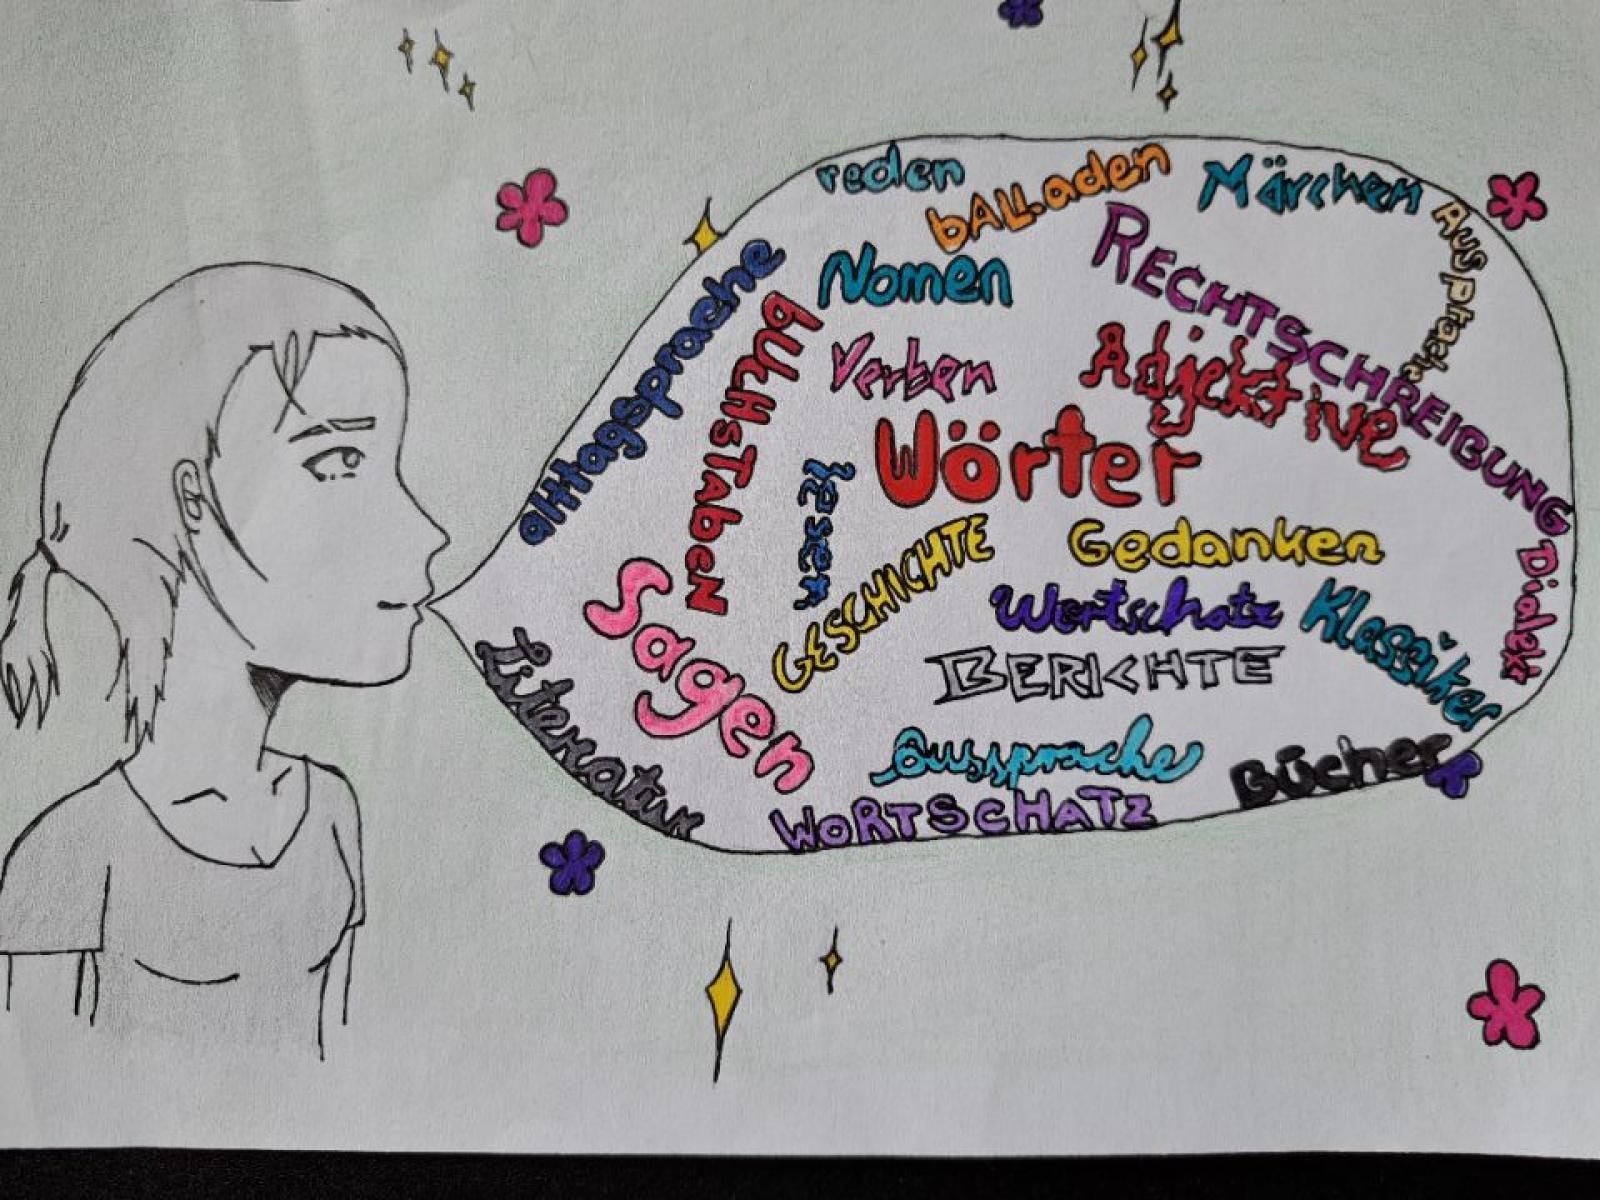 reden
bALLaden
Märchen
Ausprache
alltagsprache
Nomen
RECHTSCHREIBUNG
bUcHsTabeN
Verben
Adjektive
Wörter
lesen
GESCHICHTE
Gedanken
Dialekt
Sagen
Wortschatz
Klassiker
Literatur
BERICHTE
Aussprache
Bücher
WORTSCHATZ